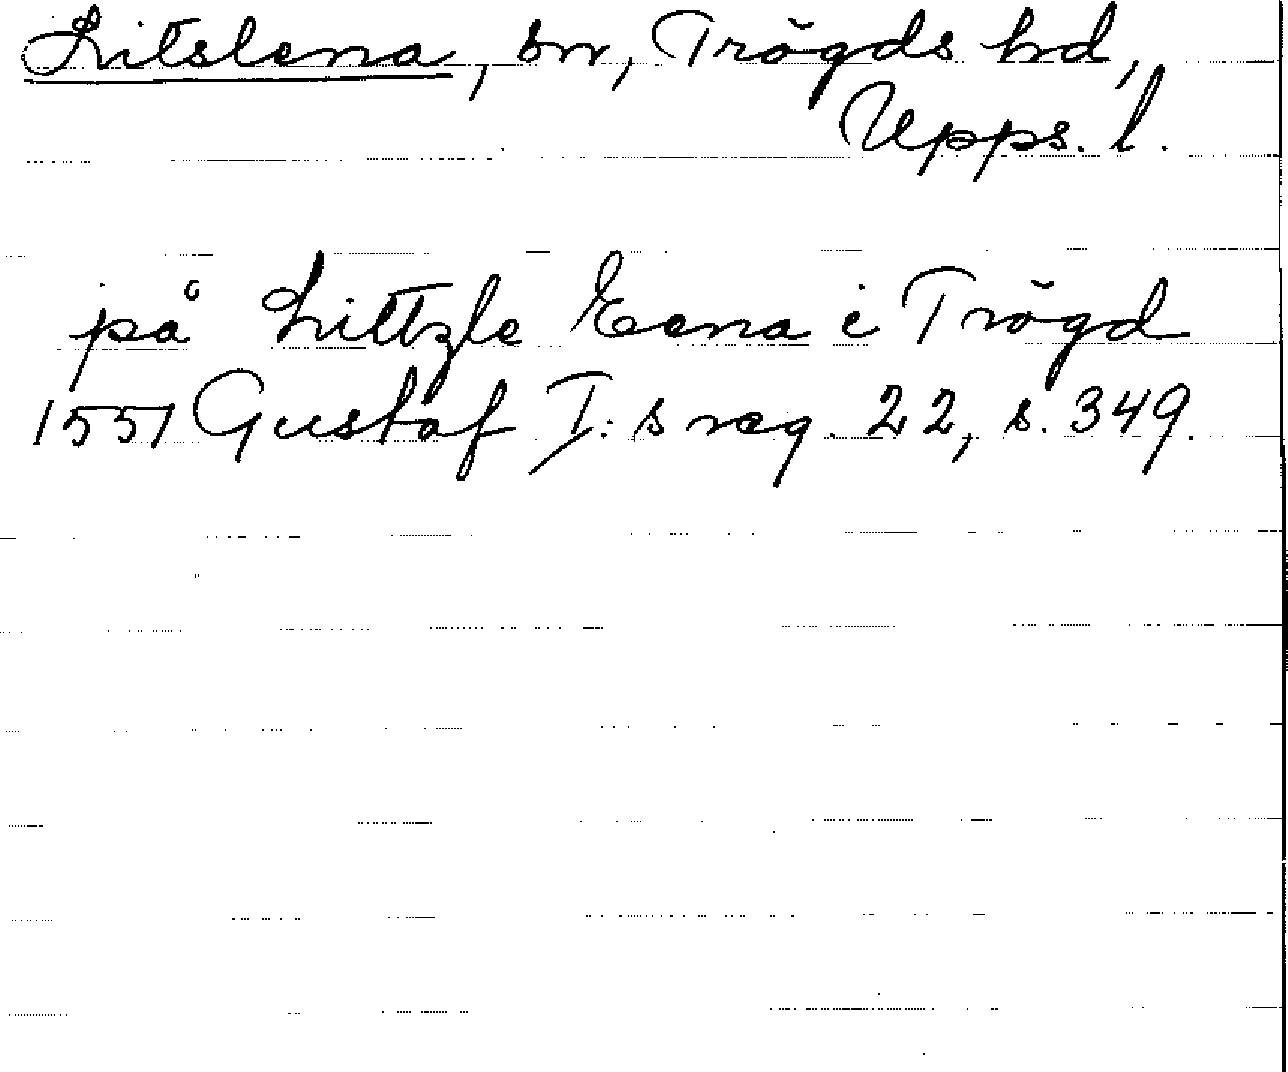 Litslena, sn, Trögds hd,
Upps. l.
på Littzle Eena i Trögd
1551 Gustaf I:s reg. 22, s. 349.